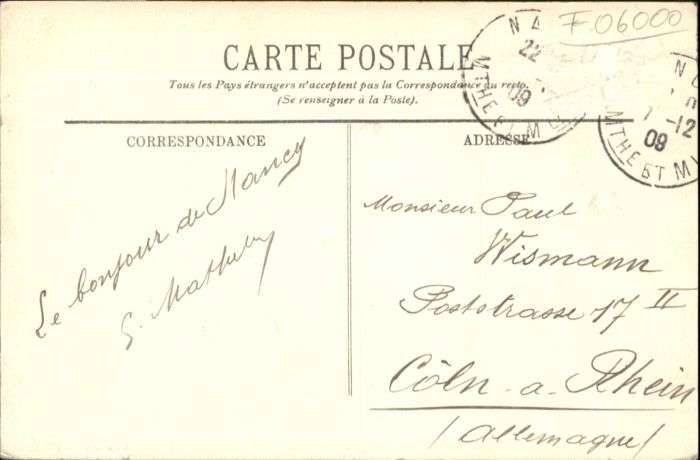 F.06000
CARTE POSTALE
Tous les Pays étrangers n'acceptent pas la Correspondance au recto.
(Se renseigner à la Poste).
CORRESPONDANCE
ADRESSE
Le bonjour de Nancy
Monsieur Paul
Wismann
Poststrasse 17 II
Cöln - a. Rhein
(Allemagne)
22
09
MTHE ET M
-12
09
MTHE ET M